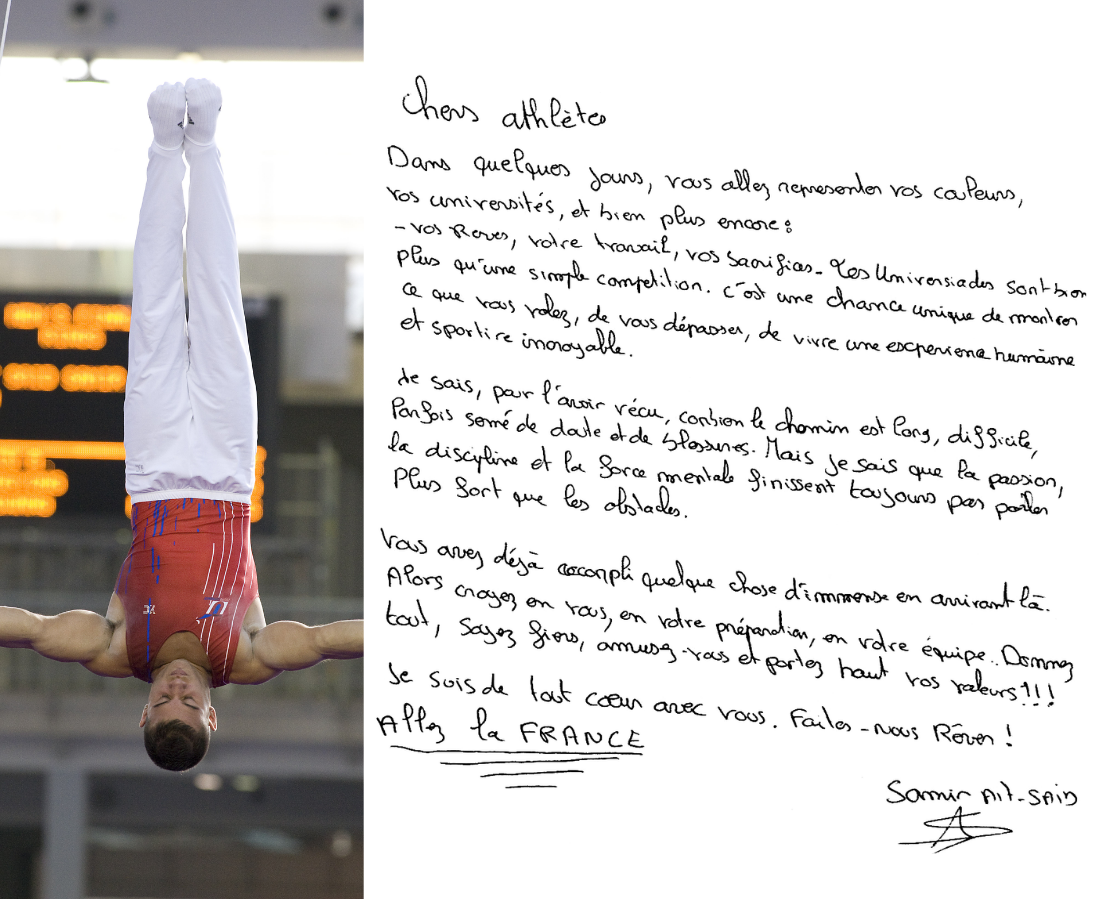 Chers athlètes
Dans quelques jours, vous allez representer vos couleurs,
vos universités, et bien plus encore :
- vos Reves, votre travail, vos sacrifices. Les Universiades sont bien
plus qu'une simple competition. c'est une chance unique de montrer
ce que vous valez, de vous dépasser, de vivre une experience humaine
et sportive incroyable.
Je sais, pour l'avoir vécu, combien le chemin est long, difficile,
Parfois semé de doute et de blessures. Mais je sais que la passion,
la discipline et la force mentale finissent toujours par parler
Plus fort que les obstacles.
Vous avez déjà accompli quelque chose d'immense en arrivant là.
Alors croyez en vous, en votre préparation, en votre équipe.. Donnez
tout, Soyez fiers, amusez-vous et portez haut vos valeurs !!!
Je suis de tout cœur avec vous. Faites-nous Rêver !
Allez la FRANCE
Samir Ait-SAID